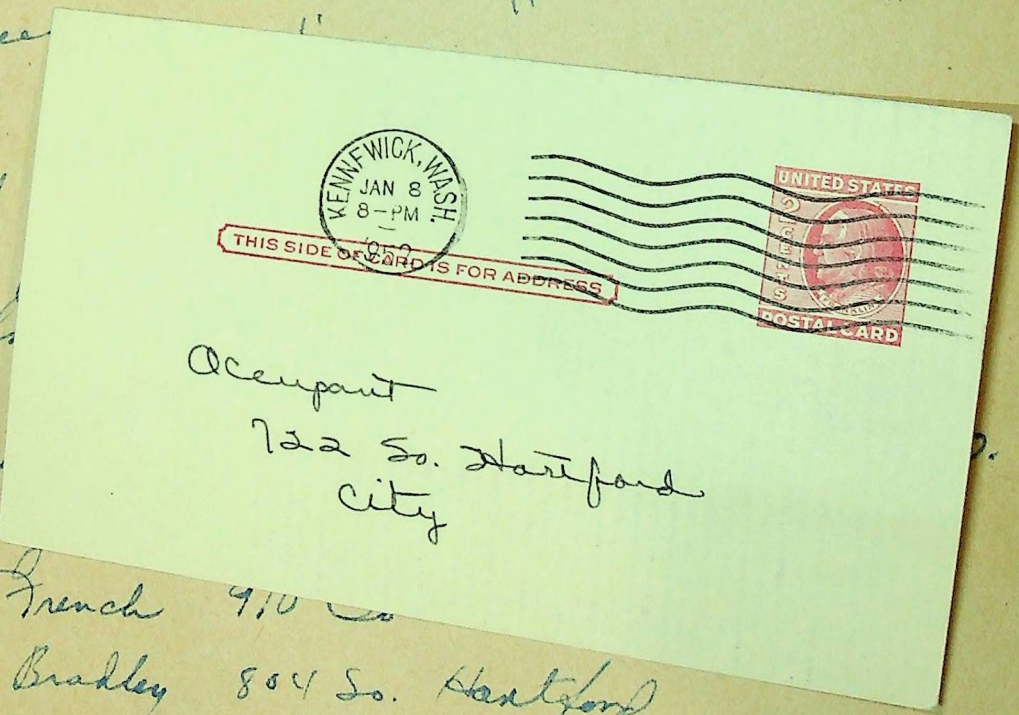 KENNEWICK, WASH.
JAN 8
8-PM
THIS SIDE OF CARD IS FOR ADDRESS
UNITED STATES
2 CENTS
FRANKLIN
POSTAL CARD
Occupant
722 So. Hartford
City
French 910 So
Bradley 804 So. Hartford